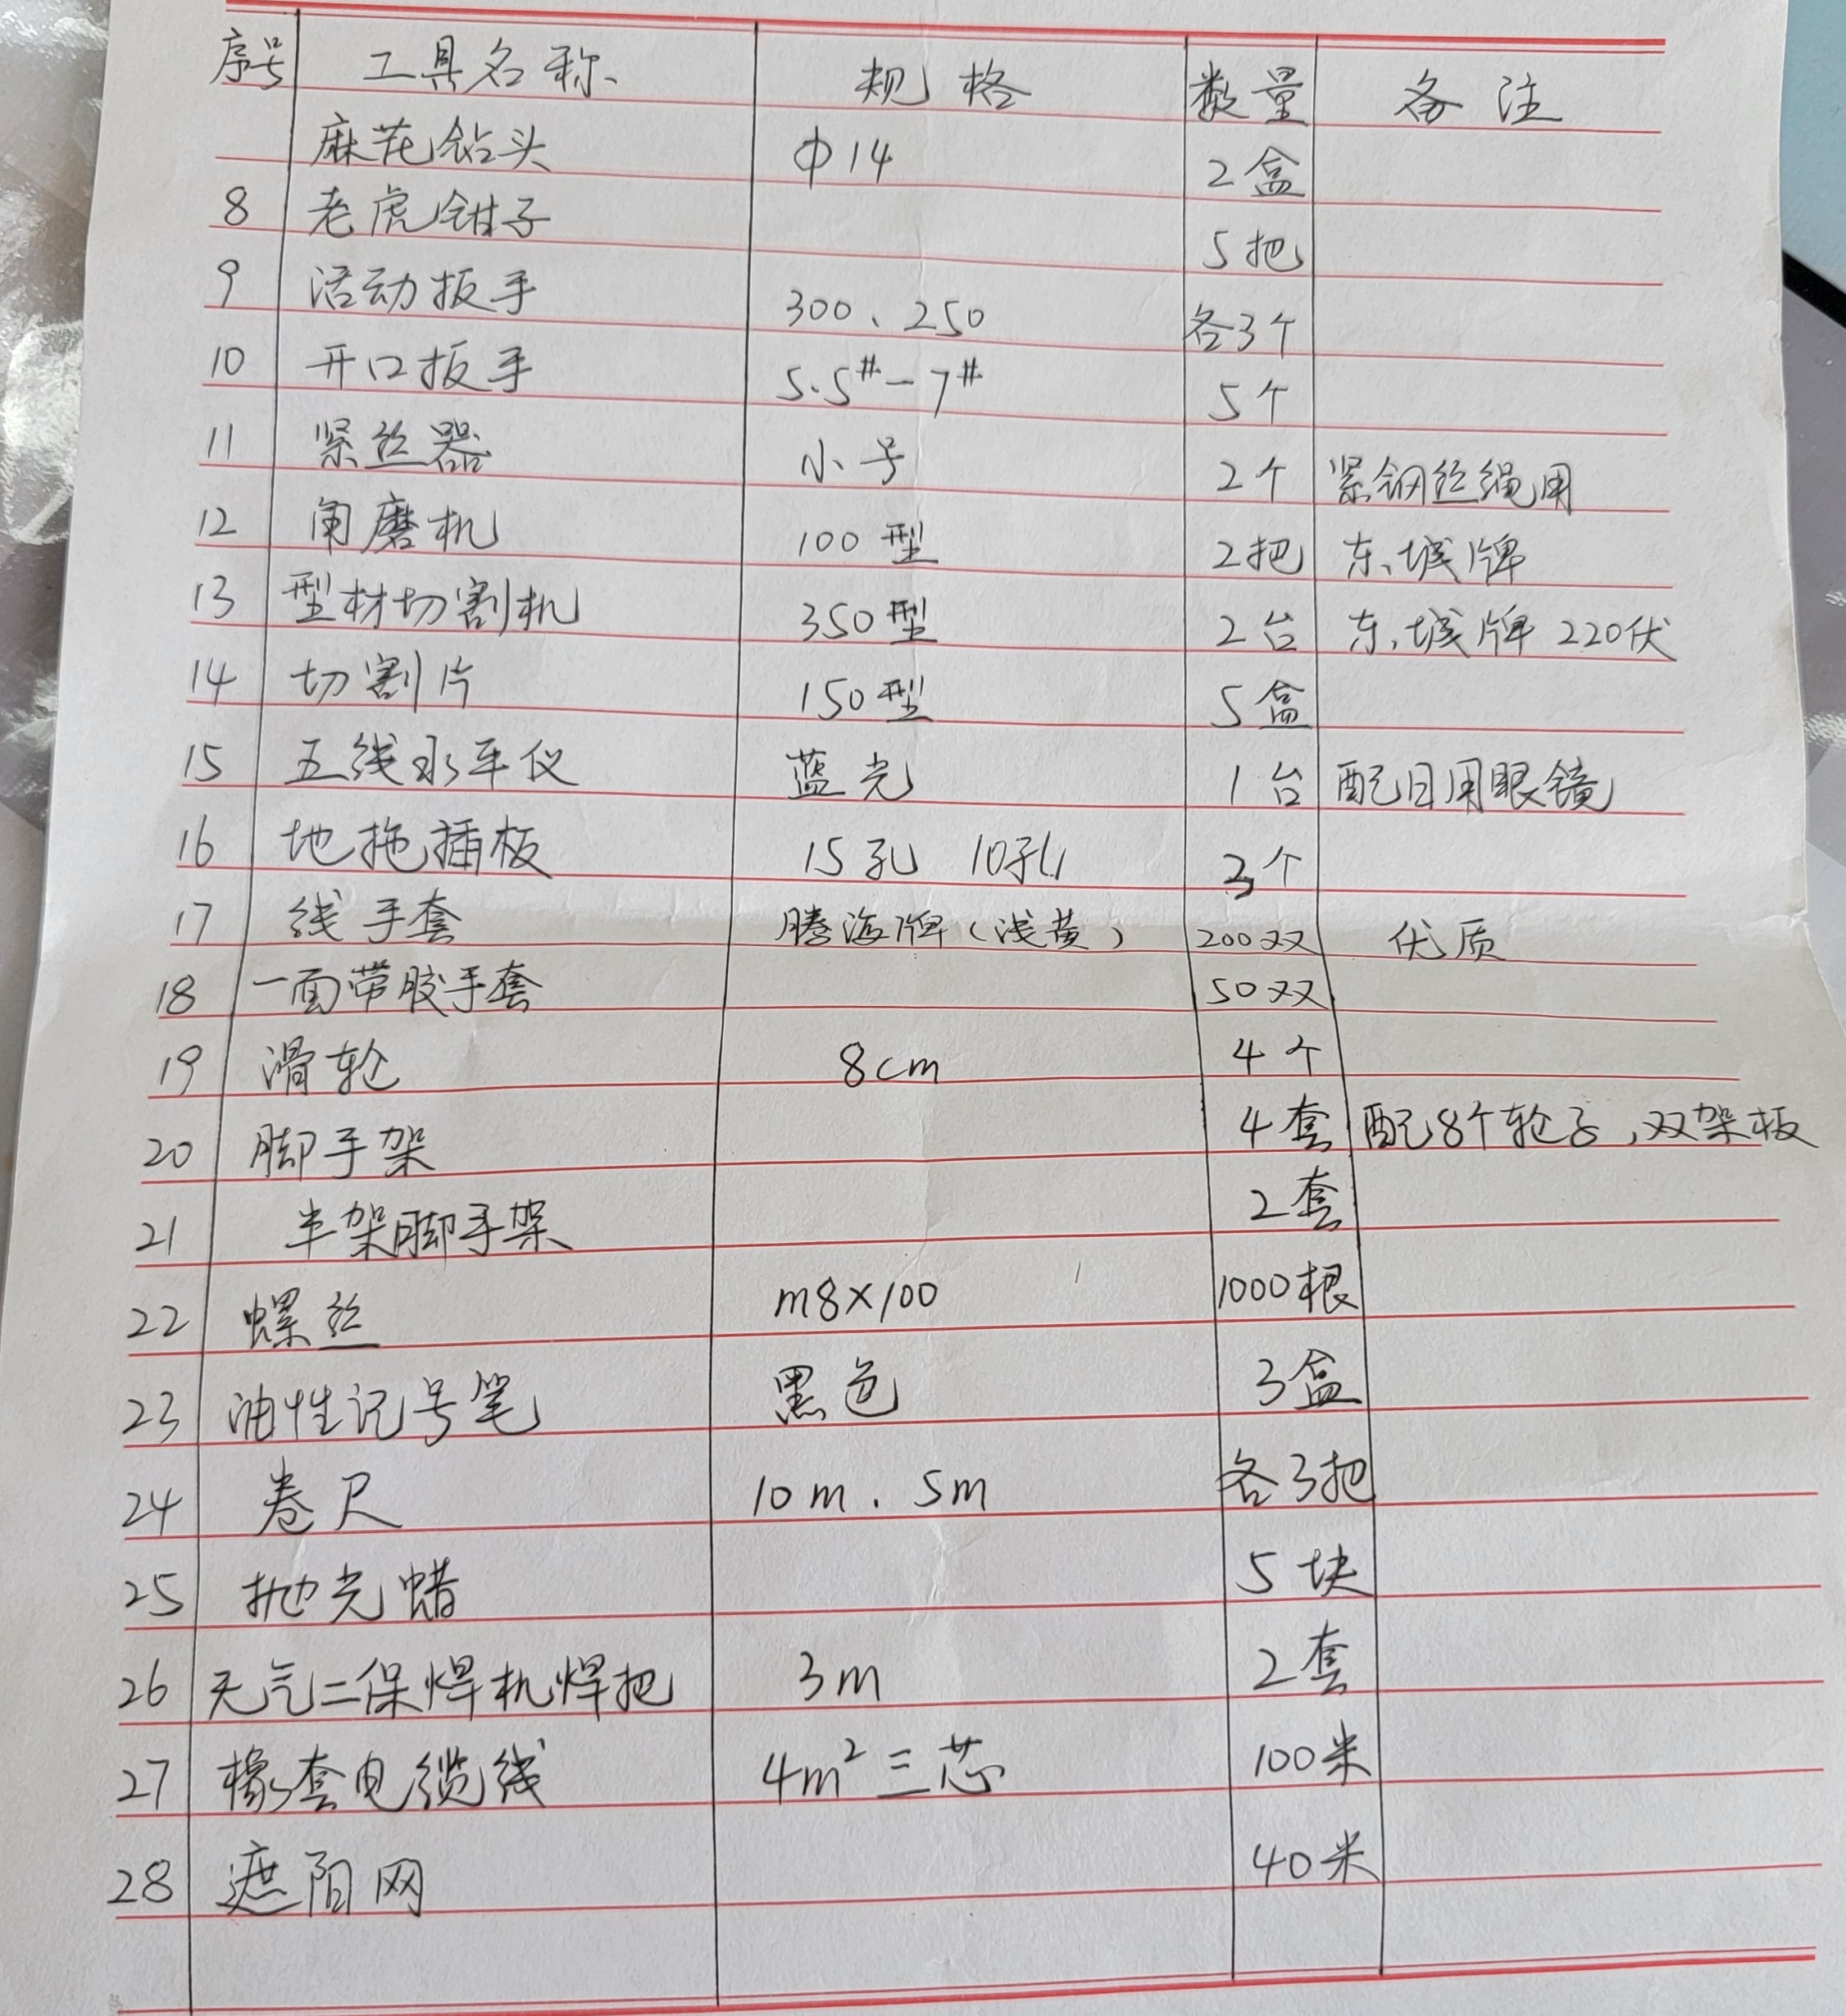 序号 工具名称 规格 数量 备注
麻花钻头 Φ14 2盒
8 老虎钳子 5把
9 活动扳手 300、250 各3个
10 开口扳手 5.5#-7# 5个
11 紧丝器 小号 2个 紧钢丝绳用
12 角磨机 100型 2把 东城牌
13 型材切割机 350型 2台 东城牌 220伏
14 切割片 150型 5盒
15 五线水平仪 蓝光 1台 配日用眼镜
16 地拖插板 15孔 10孔 个
17 线手套 腾海牌(浅黄) 200双 优质
18 一面带胶手套 50双
19 滑轮 8cm 4个
20 脚手架 4套 配8个轮子,双架板
21 半架脚手架 2套
22 螺丝 m8×100 1000根
23 油性记号笔 黑色 3盒
24 卷尺 10m、5m 各3把
25 抛光蜡 5块
26 无气二保焊机焊把 3m 2套
27 橡套电缆线 4m² 三芯 100米
28 遮阳网 40米